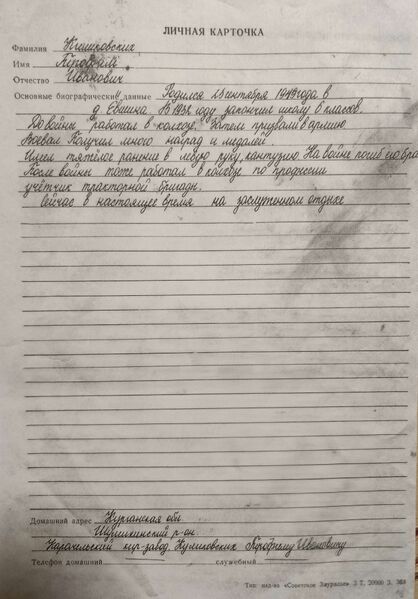 ЛИЧНАЯ КАРТОЧКА
Фамилия
Имя
Отчество Иванович
Основные биографические данные Родился сентября года в
д. Евшина В году закончил школу 6 классов.
До войны работал в колхозе. Затем призвали в армию
Воевал Получил много наград и медалей.
Имел тяжелое ранение в левую руку, кантузию На войне погиб его бра
После войны тоже работал в колхозе по професии
учётчик тракторной бригады.
Сейчас в настоящее время на заслуженном отдыхе
Домашний адрес Курганская обл
р-он.
Каргапольский завод. Ивановичу
Телефон домашний служебный
Тип. изд-ва «Советское Зауралье» З Т. 20000 З.